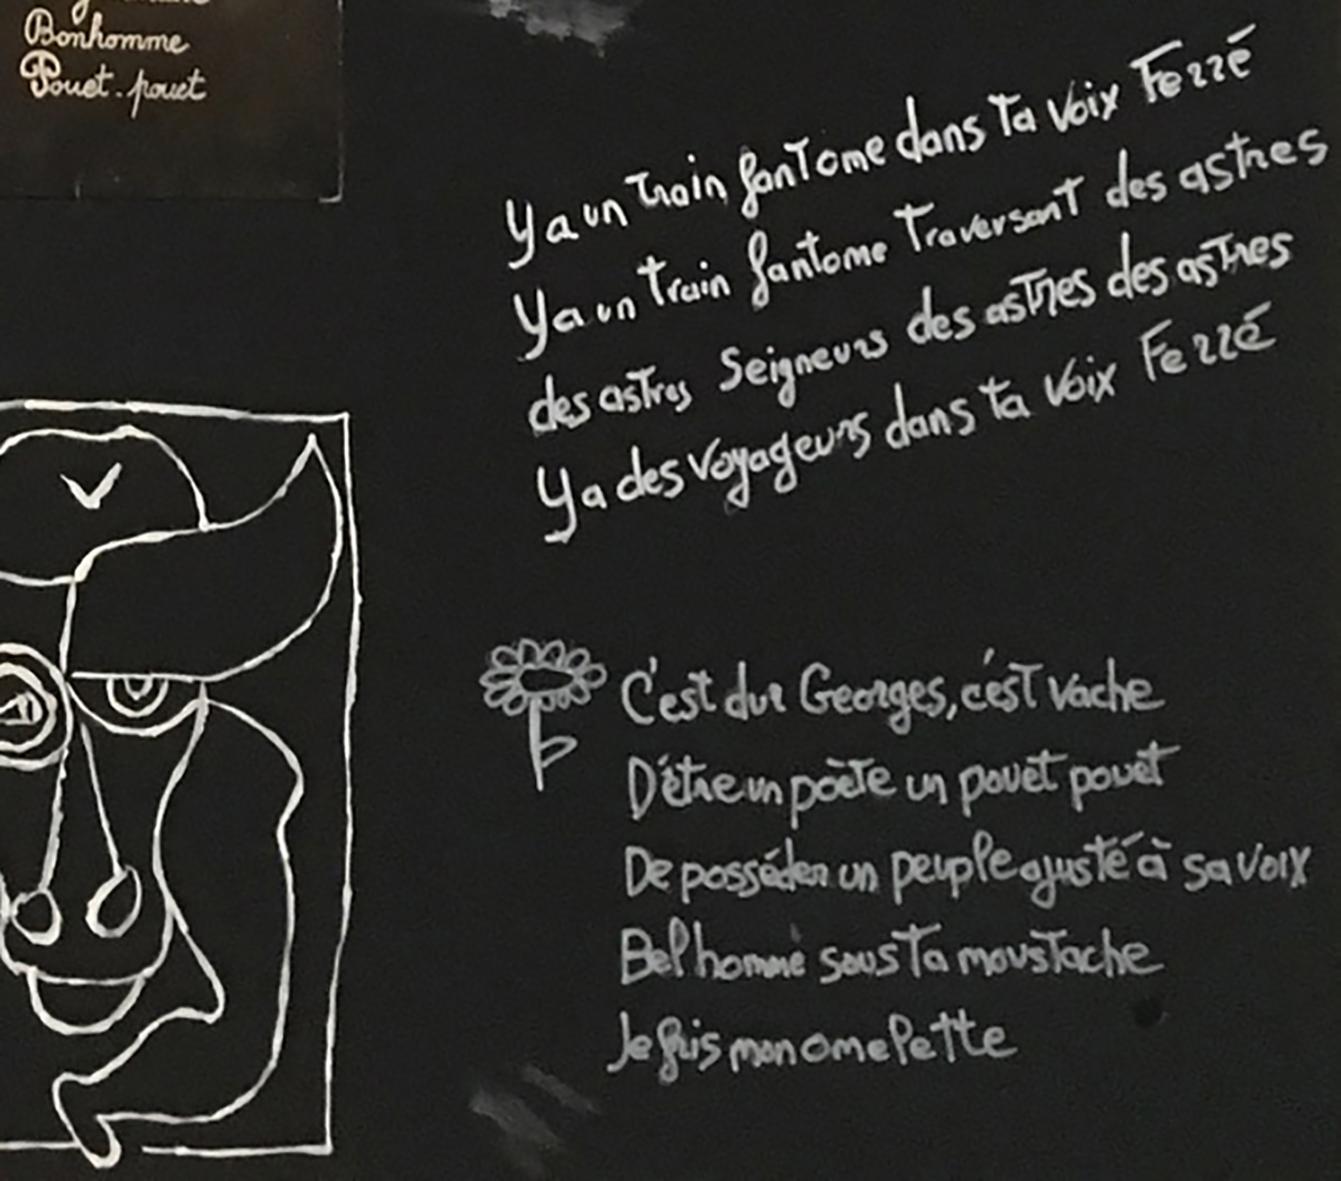 Bonhomme
Pouet-pouet
Y a un train fantome dans ta voix Ferré
Y a un train fantome Traversant des astres
des astres Seigneurs des astres des astres
Y a des voyageurs dans ta voix Ferré
C'est dur Georges, c'est vache
D'être un poète un pouet pouet
De posséder un peuple ajusté à sa voix
Bel homme sous ta moustache
Je fais mon omelette